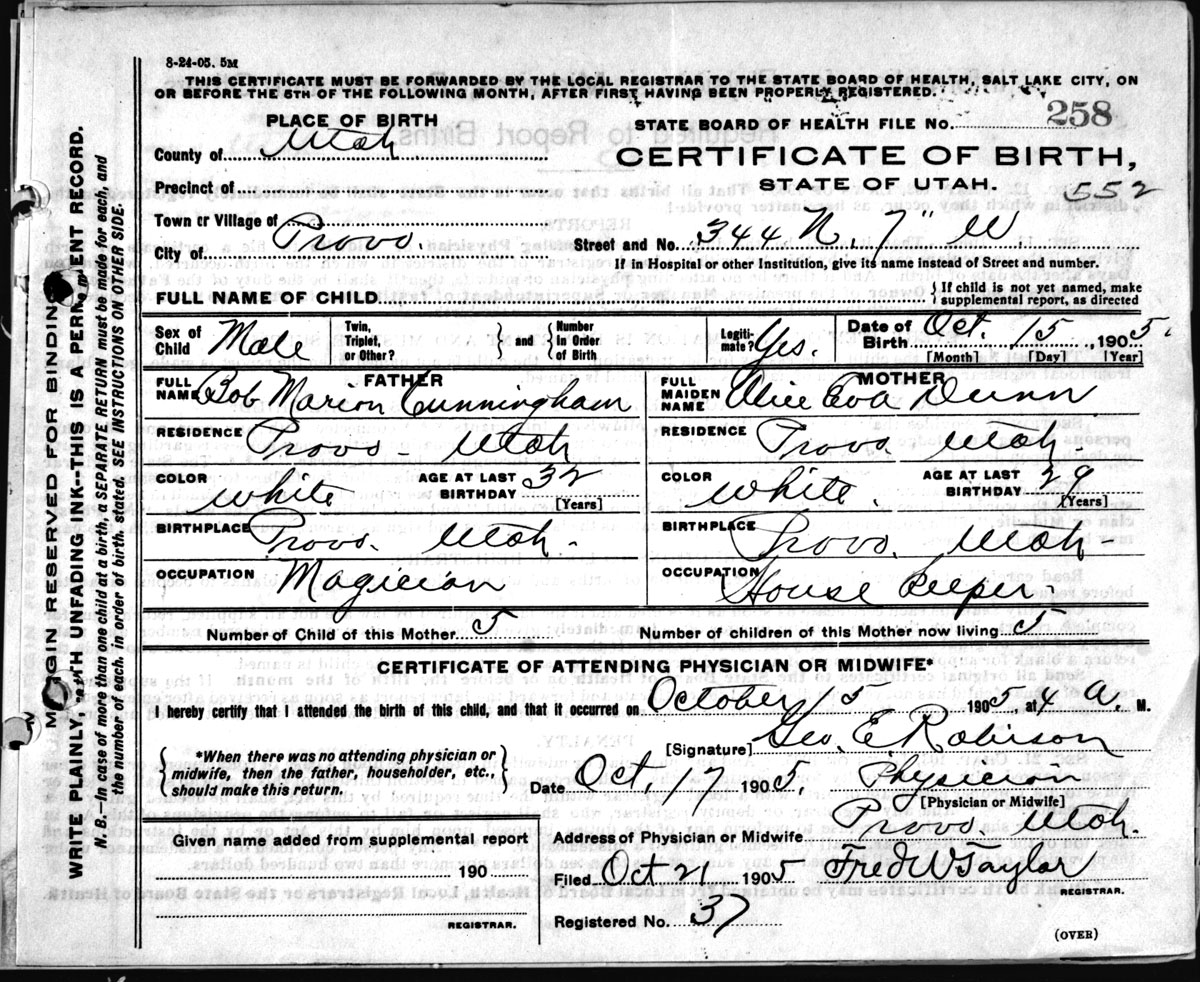 8-24-05. 5M
THIS CERTIFICATE MUST BE FORWARDED BY THE LOCAL REGISTRAR TO THE STATE BOARD OF HEALTH, SALT LAKE CITY, ON
OR BEFORE THE 5TH OF THE FOLLOWING MONTH, AFTER FIRST HAVING BEEN PROPERLY REGISTERED.
PLACE OF BIRTH
STATE BOARD OF HEALTH FILE No. 258
County of Utah
CERTIFICATE OF BIRTH,
STATE OF UTAH.
552
Precinct of
Town or Village of
City of Provo.
Street and No. 344 N, 7" W
If in Hospital or other Institution, give its name instead of Street and number.
FULL NAME OF CHILD
{ If child is not yet named, make
supplemental report, as directed
Sex of Child Male
Twin, Triplet, or Other? } and { Number In Order of Birth
Legitimate? Yes.
Date of Birth Oct. 15, 1905.
[Month] [Day] [Year]
FATHER
FULL NAME Bob Marion Cunningham
MOTHER
FULL MAIDEN NAME Alice Eva Dunn
RESIDENCE Provo - Utah
RESIDENCE Provo. Utah.
COLOR White
AGE AT LAST BIRTHDAY 32
[Years]
COLOR White.
AGE AT LAST BIRTHDAY 29
[Years]
BIRTHPLACE Provo. Utah.
BIRTHPLACE Provo. Utah -
OCCUPATION Magician
OCCUPATION House Keeper.
Number of Child of this Mother 5
Number of children of this Mother now living 5
CERTIFICATE OF ATTENDING PHYSICIAN OR MIDWIFE*
I hereby certify that I attended the birth of this child, and that it occurred on October 15 1905, at 4 A. M.
{ *When there was no attending physician or
midwife, then the father, householder, etc.,
should make this return. }
[Signature] Geo. E. Robison
Date Oct, 17 1905. Physician
[Physician or Midwife]
Given name added from supplemental report
Address of Physician or Midwife Provo. Utah.
190
Filed Oct 21 1905 Fred W Taylor
REGISTRAR.
REGISTRAR.
Registered No. 37
(OVER)
MARGIN RESERVED FOR BINDING
WRITE PLAINLY, WITH UNFADING INK--THIS IS A PERMANENT RECORD.
N. B.—In case of more than one child at a birth, a SEPARATE RETURN must be made for each, and
the number of each, in order of birth, stated. SEE INSTRUCTIONS ON OTHER SIDE.